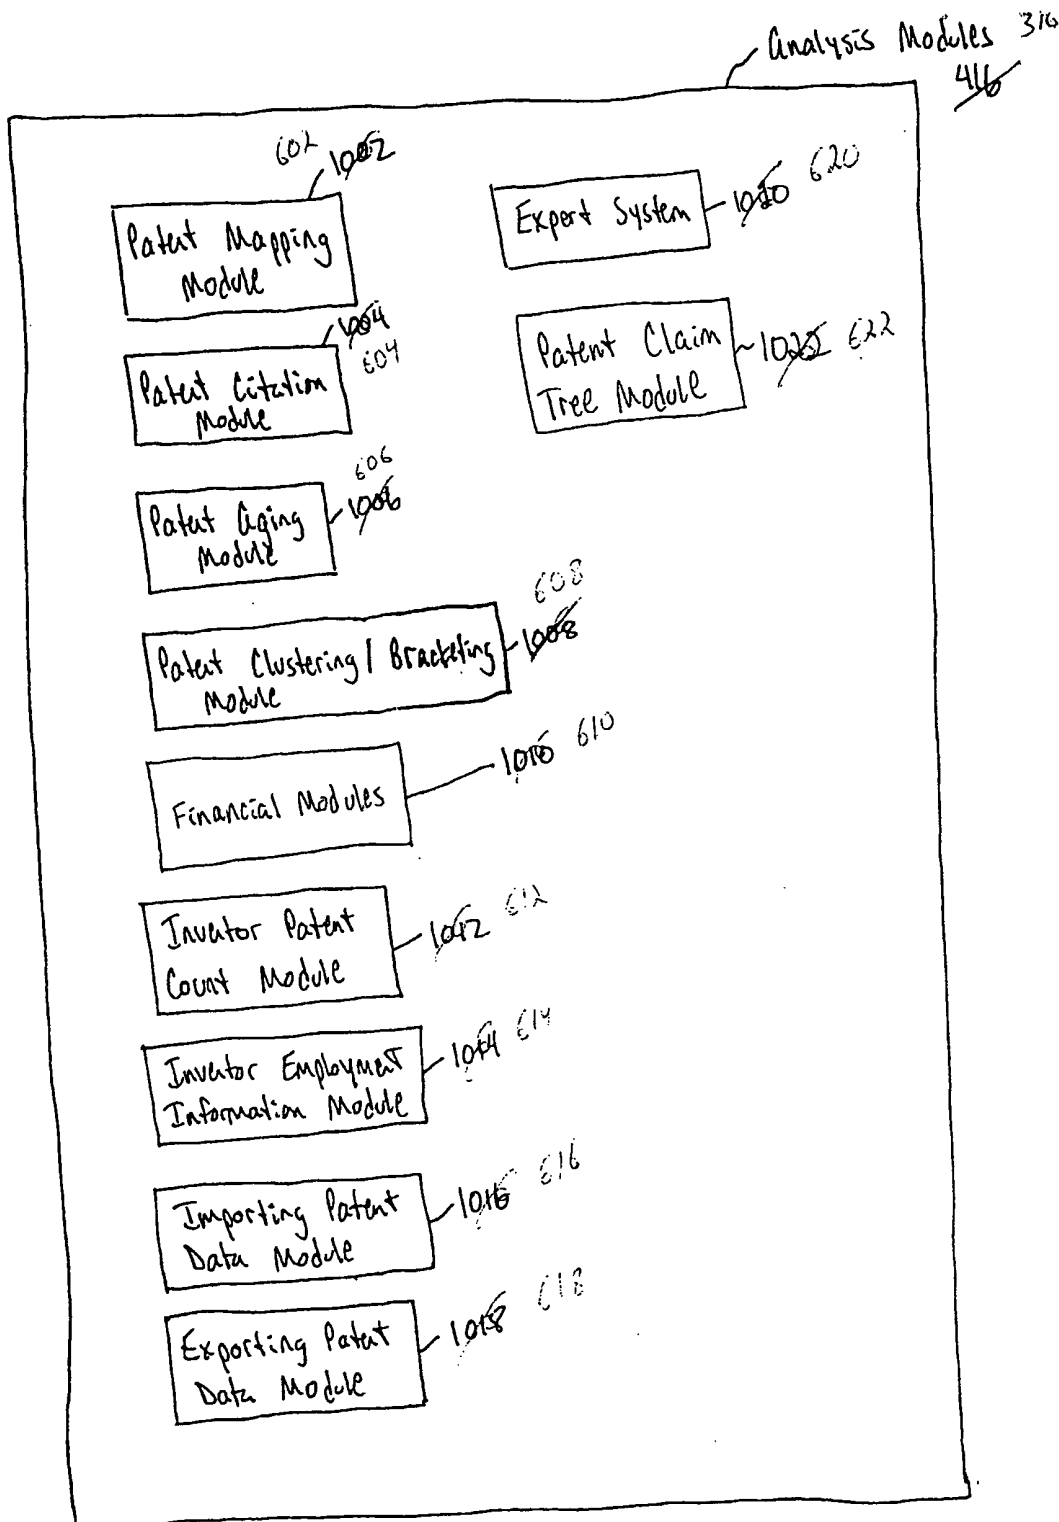 Analysis Modules 316
416
602 1002
Patent Mapping
Module
1004
604
Patent Citation
Module
606
1006
Patent Aging
Module
608
1008
Patent Clustering / Bracketing
Module
Financial Modules
1010 610
Inventor Patent
Count Module
1012 612
Inventor Employment
Information Module
1014 614
Importing Patent
Data Module
1016 616
Exporting Patent
Data Module
1018 618
Expert System
1020 620
Patent Claim
Tree Module
1022 622